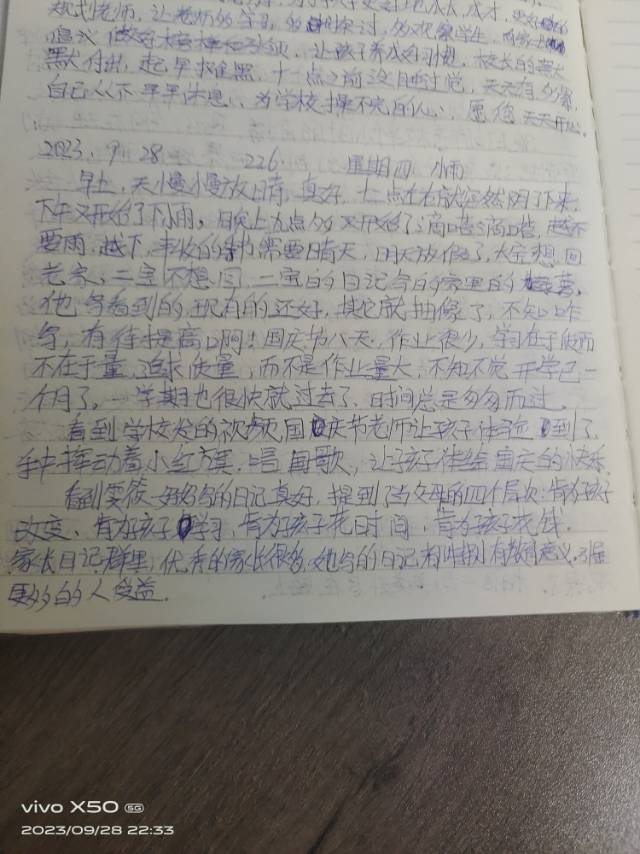 规划老师，让老师多学习，多探讨，多观察学生，向家长
建议 做好 让孩子养成好习惯，校长的默
默付出，起早贪黑，十一点之前没有睡过觉，天天有多累，
自己从不早早休息，为学校操不完的心，愿您天天开心。
2023.9.28 226. 星期四 小雨
早上，天慢慢放晴，真好，十一点左右就突然阴了下来，
下午又开始了下小雨，晚上九点多又开始了滴嗒滴嗒，越不
要雨，越下，丰收的季节需要晴天，明天放假了，大宝想回
老家，二宝不想回，二宝的日记写的家里的
他写看到的，现有的还好，其它就抽像了，不知咋
写，有待提高啊！国庆节八天，作业很少，学习在于质而
不在于量，追求质量，而不是作业量大，不知不觉开学已一
个月了，一学期也很快就过去了，时间总是匆匆而过。
看到学校发的视频，国庆节老师让孩子体验到了，
手中挥动着小红旗，唱国歌，让孩子体验国庆的快乐。
看到 妈妈写的日记真好，提到了当父母的四个层次：肯为孩子
改变、肯为孩子学习，肯为孩子花时间，肯为孩子花钱。
家长日记群里，优秀的家长很多，她写的日记相当有教育意义，引
更多的人受益。
vivo X50 5G
2023/09/28 22:33